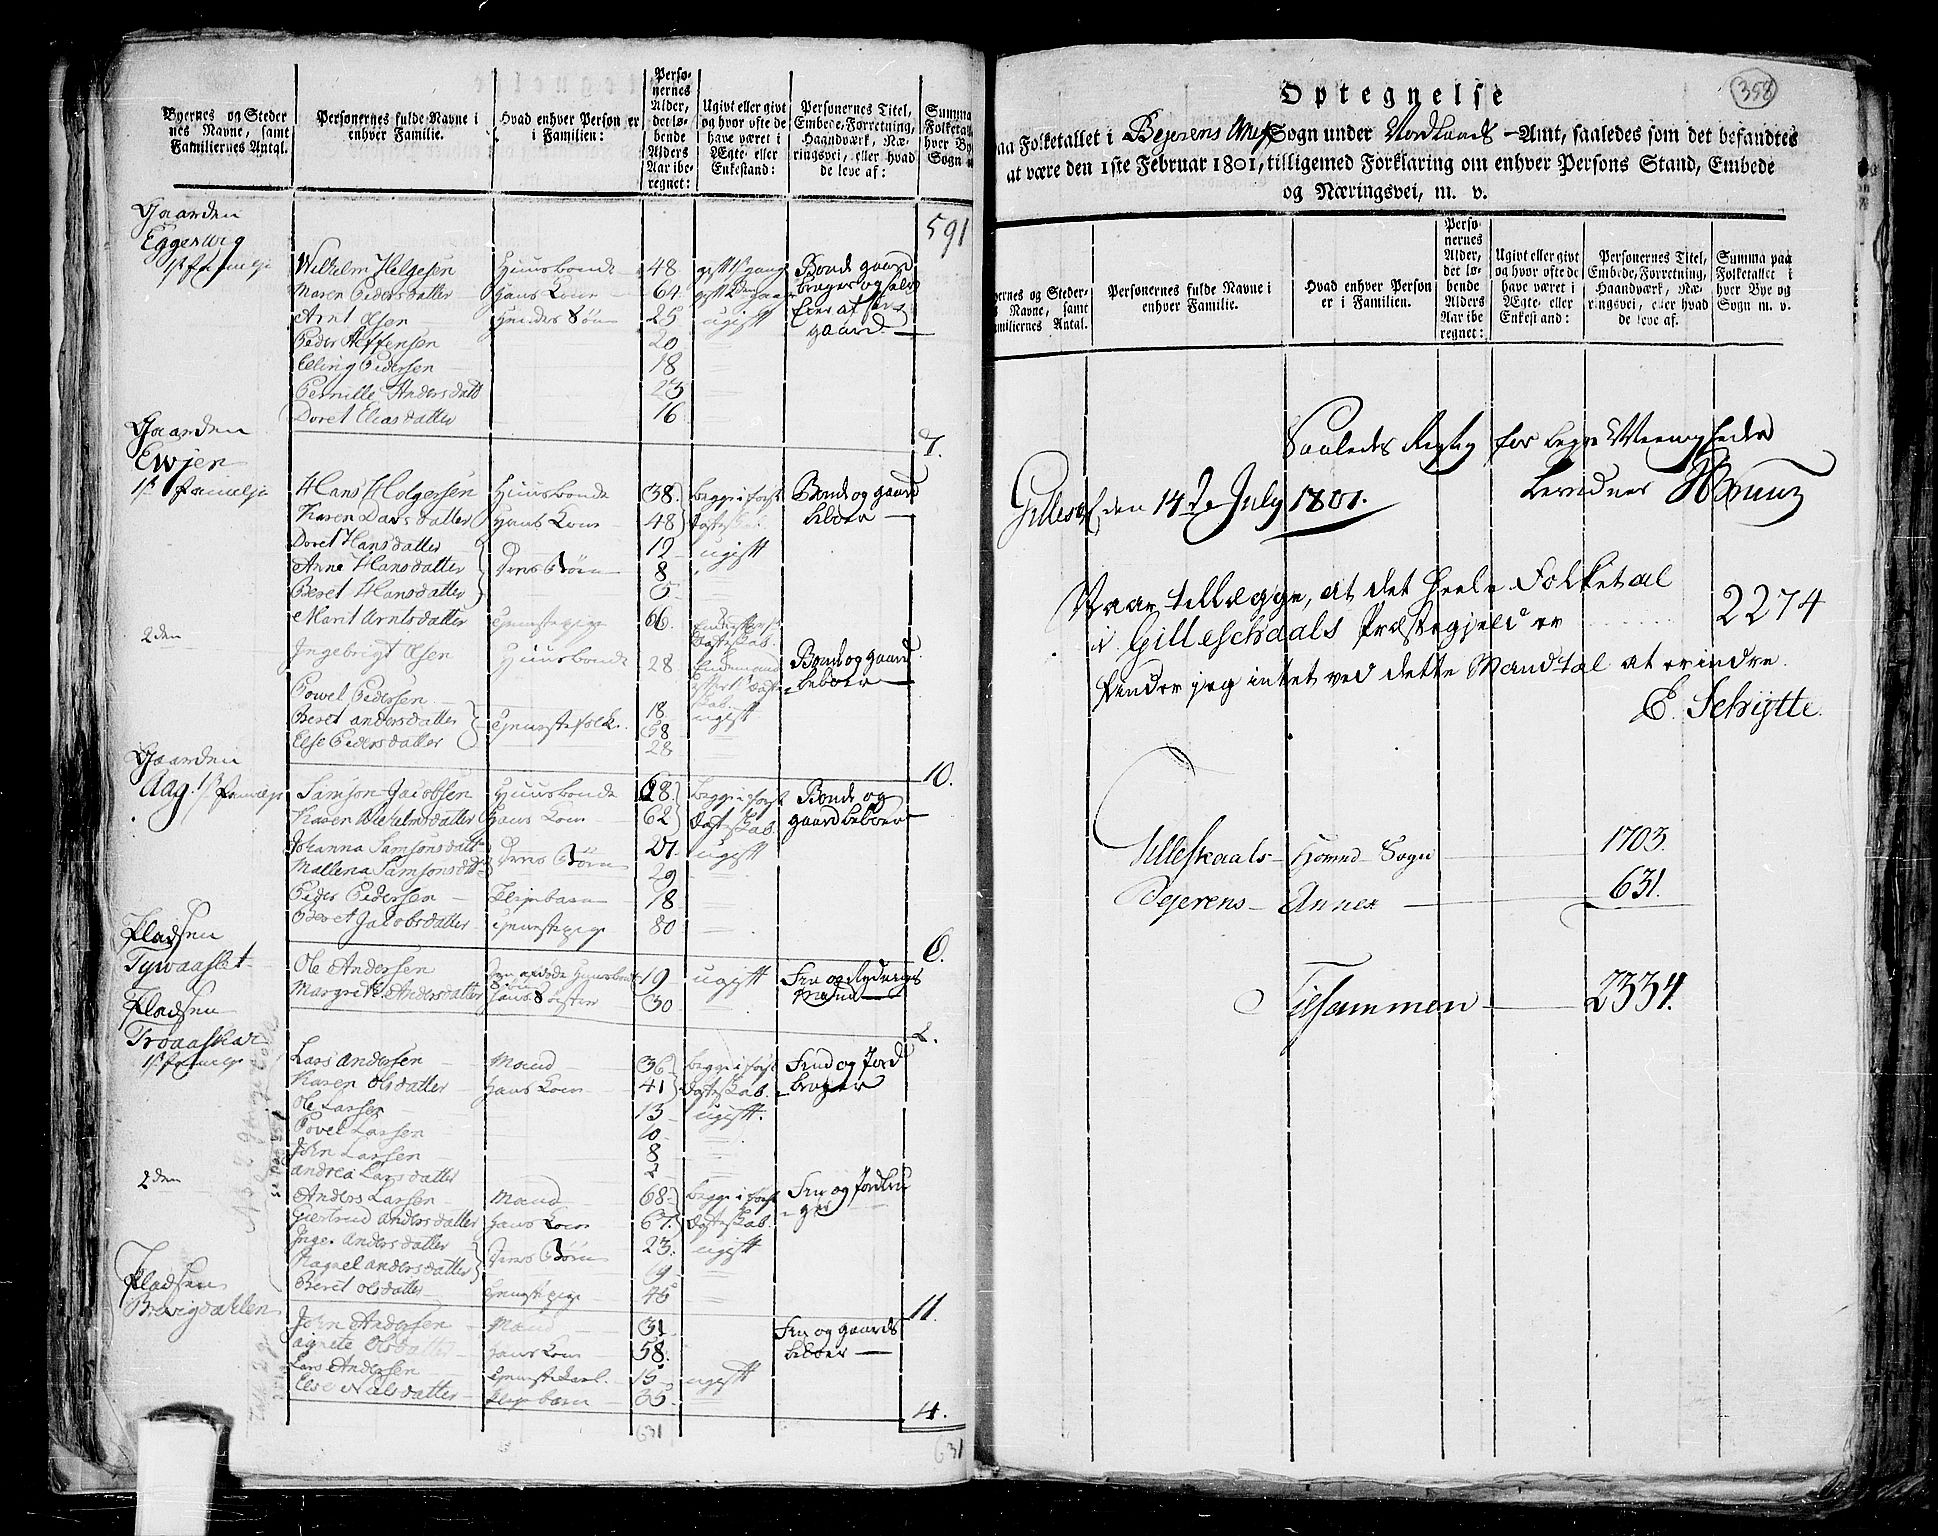 Byernes og Steder
nes Navne, samt
Familiernes Antal.
Personernes fulde Navne i
enhver Familie.
Hvad enhver Person er
i Familien:
Perso-
nernes
Alder,
det lø-
bende
Alders
Aar ibe-
regnet:
Ugivt eller givt
og hvor ofte de
have været i
Ægte- eller
Enkestand:
Personernes Titel,
Embede, Forretning,
Haandværk, Næ-
ringsvei, eller hvad
de leve af:
Summa
Folketall
hver By
Sogn
Gaarden 591
Eggeswig
1ste Familje Wilhelm Helgesen Huusbonde 48 gift 1ste gang Bonde gaard
Maren Pedersdatter hans Kone 64 gift 2den gang bruger og selv
Arnt Olsen hendes Søn 25 ugift Eier af sin
Peder Steffensen 20 gaard
Elling Pedersen 18
Pernille Andersdatt 23
Doret Eliasdatter 16
Gaarden 7.
Ewjen
1ste Familje Hans Holgersen Huusbonde 38 begge i første Bonde og gaard
Karen Larsdatter hans Kone 48 Egteskab beboer
Doret Hansdatter 12 ugift
Anne Hansdatter deres Børn 8
Beret Hansdatter 5
Marit Arntsdatter tieneste pige 66
2den Ingebrigt Olsen Huusbonde 28 Bonde og gaard
beboer
Powel Pedersen 18 ugift
Beret andersdatter tienestefolk 58
Else Pedersdatter 28
Gaarden 10.
Aag. 1ste Familje Samson Jacobsen Huusbonde 68 begge i første Bonde og
Karen Wilhelmsdatter hans Kone 62 Egteskab gaard beboer
Johanna Samsonsdatt deres Børn 27 ugift
Mallena Samsonsdtt 29
Peder Pedersen Pleiebarn 18
Beret Jacobsdatter tienestepige 80
Pladsen 6.
Tywaaslet Ole Andersen 19 ugift
Margrete Andersdatter hans Søster 30
Pladsen 2.
1ste Familje Lars andersen Mand 36 begge i første Fin og Jord
Karen Olsdatter hans Kone 41 Egteskab bruger
Ole Larsen 13 ugift.
Povel Larsen 10
John Larsen 8
andrea Larsdatter 2
2den Anders Larsen Mand 68 begge i første Fin og Jordbru
Giertrud andersdatter hans Kone 67 Egteskab ger
Inger andersdatter deres Børn 23 ugift
Ragnel andersdatter 19
Beret olsdatter tienste pige 45
Pladsen
Brevigdahlen 11.
John Andersen Mand 31 Fin og gaards
agnete Olsdatter hans Kone 58 beboer
Lars Andersen tieneste karl 15 ugift
Else Nilsdatter pleiebarn 35
4.
631 631
358
Optegnelse
paa Folketallet i Bejerens Anex Sogn under Nordlands -Amt, saaledes som det befandtes
at være den 1ste Februar 1801, tilligemed Forklaring om enhver Persons Stand, Embede
og Næringsvei, m. v.
Byernes og Steder-
s Navne, samt
Familiernes Antal.
Personernes fulde Navne i
enhver Familie.
Hvad enhver Person
er i Familien.
Perso-
nernes
Alder,
det lø-
bende
Alders
Aar ibe-
regnet:
Ugivt eller givt
og hvor ofte de
have været i
Ægte- eller
Enkestand:
Personernes Titel,
Embede, Forretning,
Haandværk, Næ-
ringsvei, eller hvad
de leve af.
Summa paa
Folketallet i
hver Bye og
Sogn m. v.
Saaledes Rigtig for begge Meenigheder
Gilleskaal, den 14de July 1801. bevidner
Naar tillægges, at det heele Folketal
i Gilleschaals Præstegjeld er 2274
finder jeg intet ved dette Mandtal at erindre.
E. Schytte.
Gilleskaals Hoved Sogn 1703.
Bejerens Annex 631.
Tilsammen 2334.